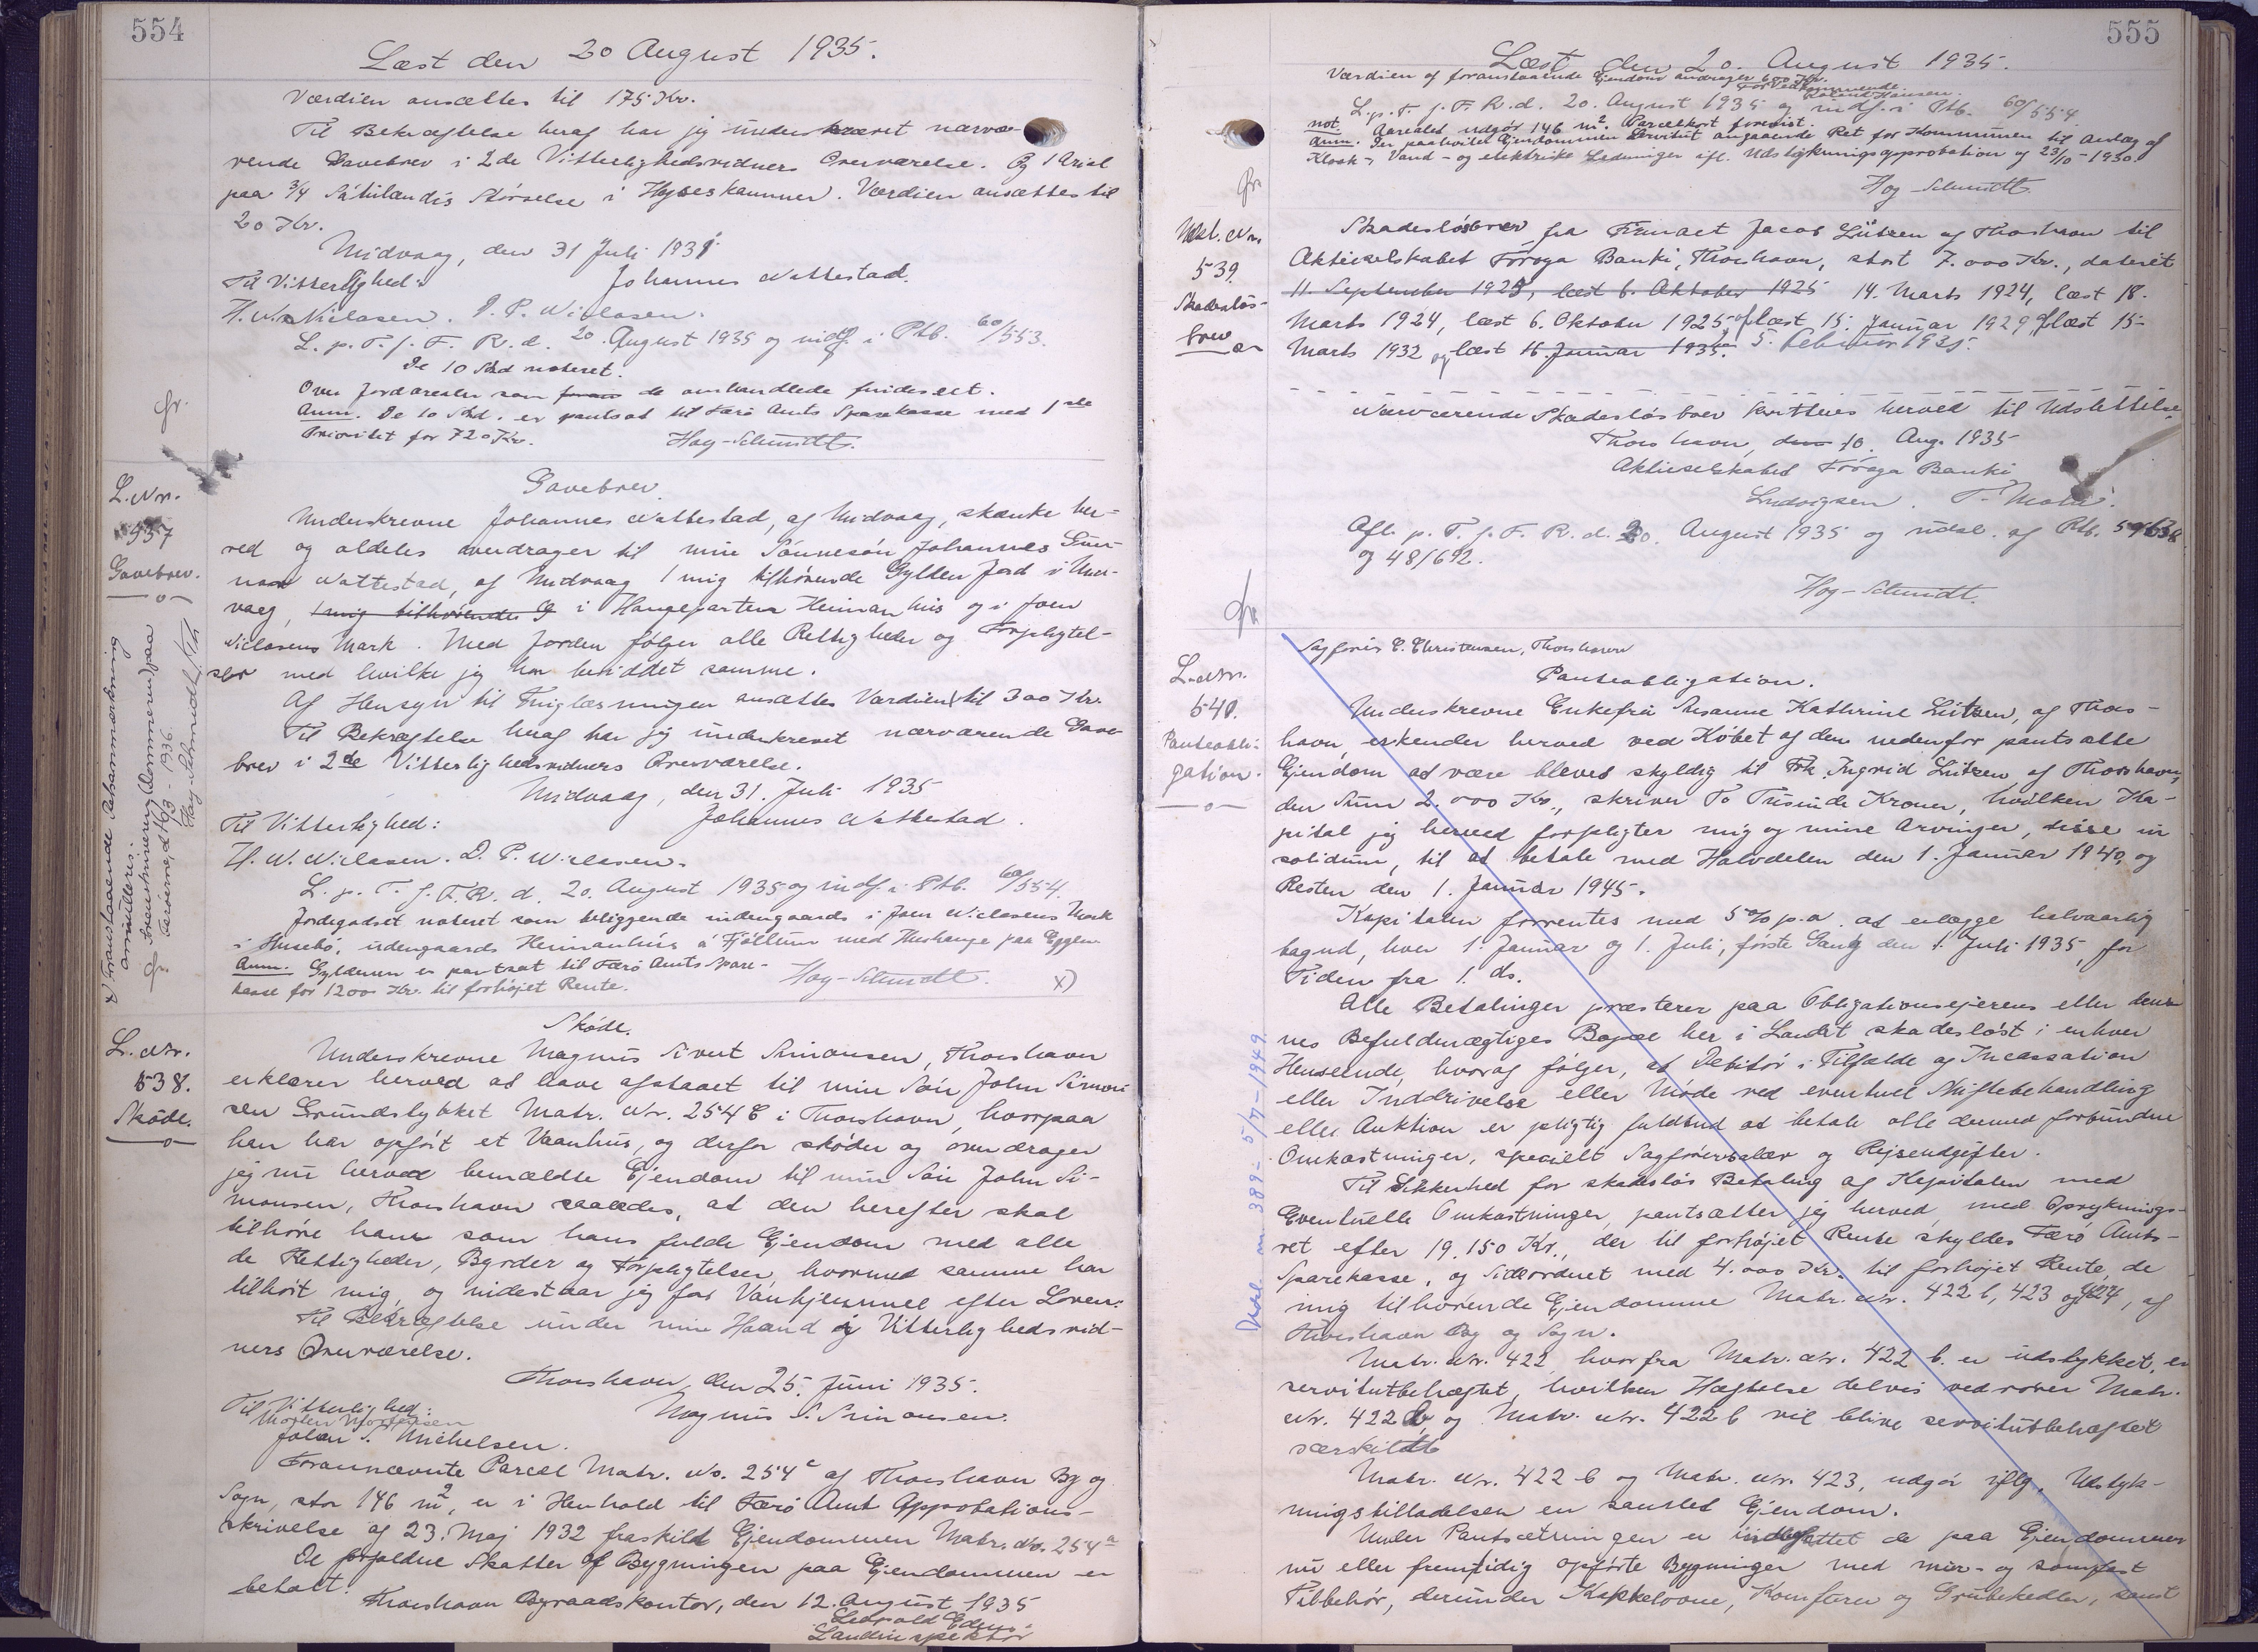 554
Læst den 20 August 1935.
Værdien ansættes til 175 Kr.
Til Bekræftelse heraf har jeg underskrevet nærvæ-
rende Gavebrev i 2de Vitterlighedsvidners Overværelse. Og 1 Areal
paa 3/4 Størselse i Værdien ansættes til
20 Kr.
Midvaag, den 31 Juli 1935
Til Vitterlighed: Johannes Nattestad.
H. N. Nielasen. D. P. Nielasen.
L. p. T. f. F. R. d. 20 August 1935 og indf. i Ptb. 60/553.
De 10 Skd noteret.
Over Jordarealer som de omhandlede findes ert.
Anm. De 10 Skd. er pantsat til Færø Amts Sparekasse med 1ste
Prioritet for 720 Kr. Høg-Schmidt.
gr.
L. Nr.
537
Gavebrev.
Gavebrev.
Underskrevne Johannes Nattestad, af Midvaag, skænke her-
ved og aldeles overdrager til min Sønnesøn Johannes Gun-
nar Nattestad, af Midvaag 1 mig tilhørende Gylden Jord i Mid-
vaag, 1 mig tilhørende G i Haugeparten Heimanhus og i Joen
Nielasens Mark. Med Jorden følger alle Rettigheder og Forpligtel-
ser med hvilke jeg har besiddet samme.
Af Hensyn til Tinglæsningen ansættes Værdien til 300 Kr.
Til Bekræftelse heraf har jeg underskrevet nærværende Gave-
brev i 2de Vitterlighedsvidners Overværelse.
Midvaag, den 31. Juli 1935
Til Vitterlighed: Johannes Nattestad.
H. N. Nielasen. D. P. Nielasen.
L. p. T. f. F. R. d. 20. August 1935 og indf. i Ptb. 60/554.
Jordegodset noteret som beliggende indengaards i Joen Nielasens Mark
i Husebø, udengaards Heimanhús á Fjøllum med Hushauge paa Eggen.
Anm. Gyldenen er pantsat til Færø Amts Spare-
kasse for 1200 Kr. til forhøjet Rente. Høg-Schmidt. x)
x) Foranstaaende Retsanmærkning
annulleres.
Sorenskriveren (Dommeren) paa
Færøerne, d. 16/3 - 1936.
Høg-Schmidt
L. Nr.
538.
Skøde.
Skøde.
Underskrevne Magnus Sivert Simonsen, Thorshavn
erklærer herved at have afstaaet til min Søn John Simon-
sen Grundstykket Matr. Nr. 254 c i Thorshavn, hvorpaa
han har opført et Vaanhus, og derfor skøder og overdrager
jeg nu herved bemældte Ejendom til min Søn John Si-
monsen, Thorshavn saaledes, at den herefter skal
tilhøre ham som hans fulde Ejendom med alle
de Rettigheder, Byrder og Forpligtelser hvormed samme har
tilhørt mig, og indestaar jeg for Vanhjemmel efter Loven.
Til Bekræftelse under min Haand og Vitterlighedsvid-
ners Overværelse.
Thorshavn, den 25. Juni 1935.
Til Vitterlighed: Magnus S. Simonsen.
Morten Mortensen
Johan S. Michelsen.
Forannævnte Parcel Matr. No. 254 c af Thorshavn By og
Sogn, stor 146 m2, er i Henhold til Færø Amt Approbations-
skrivelse af 23. Maj 1932 fraskilt Ejendommen Matr. No. 254 a
De forfaldne Skatter af Bygningen paa Ejendommen er
betalt.
Thorshavn Byraadskontor, den 12. August 1935
Landinspektør
555
Læst den 20. August 1935.
Værdien af foranstaaende Ejendom andrager 600 Kr.
For Vedkommende
Roland Hansen.
L. p. T. f. F. R. d. 20. August 1935 og indf. i Ptb. 60/554.
not. Arealet udgør 146 m2. Parcelkort forevist.
Anm. Der paahviler Ejendommen Servitut angaaende Ret for Kommunen til Anlæg af
Kloak-, Vand- og elektriske Ledninger ifl. Udstykningsapprobation af 23/10 - 1930.
Høg-Schmidt.
gr.
Udsl. Nr.
539.
Skadesløs-
brev
Skadesløsbrev fra Jacob Lützen af Thorshavn til
Aktieselskabet Føroya Banki, Thorshavn, stort 7.000 Kr., dateret
11. September 1925, læst 6. Oktober 1925 14. Marts 1924, læst 18.
Marts 1924, læst 6. Oktober 1925, læst 15. Januar 1929, læst 15-
Marts 1932 og læst 16. Januar 1935. 5. Februar 1935.
Nærværende Skadesløsbrev kvitteres herved til Udslettelse
Thorshavn, den 10. Aug. 1935
Aktieselskabet Føroya Banki
Ludvigsen.
Afl. p. T. f. F. R. d. 20. August 1935 og udsl. af Ptb.
og 48/692.
Høg-Schmidt.
gr.
L. Nr.
540.
Panteobli-
gation.
Sagfører C. Christensen, Thorshavn
Panteobligation.
Underskrevne Enkefru Susanne Kathrine Lützen, af Thors-
havn, erkender herved ved Købet af den nedenfor pantsatte
Ejendom at være bleven skyldig til Frk. Ingrid Lützen af Thorshavn,
den Sum 2.000 Kr., skriver To Tusinde Kroner, hvilken Ka-
pital jeg herved forpligter mig og mine Arvinger, disse in
solidum, til at betale med Halvdelen den 1. Januar 1940, og
Resten den 1. Januar 1945.
Kapitalen forrentes med 5 % p.a. at erlægge halvaarlig
bagud, hver 1. Januar og 1. Juli, første Gang den 1. Juli 1935, for
Tiden fra 1. ds.
Alle Betalinger præsterer paa Obligationsejerens eller dennes
nes Befuldmægtiges Bopæl her i Landet skadesløst i enhver
Henseende, hvoraf følger, at Debitor i Tilfælde af Incassation
eller Inddrivelse eller Møde ved eventuel Skiftebehandling
eller Auktion er pligtig fuldtud at betale alle dermed forbundne
Omkostninger, specielt Sagførersalær og Rejseudgifter.
Til Sikkerhed for skadesløs Betaling af Kapitalen med
Eventuelle Omkostninger, pantsætter jeg herved med Opryknings-
ret efter 19.150 Kr., der til forhøjet Rente skyldes Færø Amts-
Sparekasse, og Sideordnet med 4.000 Kr. til forhøjet Rente, de
mig tilhørende Ejendomme Matr. Nr. 422 b, 423 og 424, af
Thorshavn By og Sogn.
Matr. Nr. 422, hvorfra Matr. Nr. 422 b. er udstykket, er
servitutbehæftet, hvilken Hæftelse delvis vedrører Matr.
Nr. 422 b, og Matr. Nr. 422 b vil blive servitutbehæftet
særskildt
Matr. Nr. 422 b og Matr. Nr. 423, udgør iflg. Udstyk-
ningstilladelsen en samlet Ejendom.
Under Pantsætningen er indbefattet de paa Ejendommen
nu eller fremtidig opførte Bygninger med mur- og sømfast
Tilbehør, derunder Kakkelovne, Komfurer og Grubekedler, samt
Udsl. nr. 389 - 5/7 - 1949.